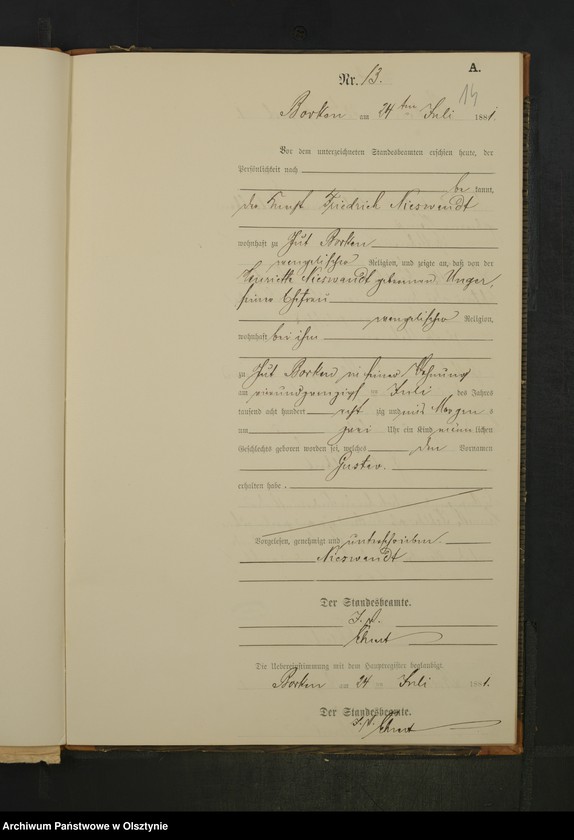 A.
Nr. 13.
14
Borken am 24 ten Juli 1881.
Vor dem unterzeichneten Standesbeamten erschien heute, der
Persönlichkeit nach
be kannt,
der Knecht Friedrich Nieswandt
wohnhaft zu Gut Borken
evangelischer Religion, und zeigte an, daß von der
Henriette Nieswandt geborenen Unger,
seiner Ehefrau
evangelischer Religion,
wohnhaft bei ihm
zu Gut Borken in seiner Wohnung
am vierundzwanzigsten Juli des Jahres
tausend acht hundert acht zig und eins Morgen s
um zwei Uhr ein Kind männ lichen
Geschlechts geboren worden sei, welches den Vornamen
Gustav.
erhalten habe.
Vorgelesen, genehmigt und unterschrieben.
Nieswandt
Der Standesbeamte.
J. V.
Die Uebereinstimmung mit dem Hauptregister beglaubigt.
Borken am 24 ten Juli 1881.
Der Standesbeamte.
J. V.
Archiwum Państwowe w Olsztynie